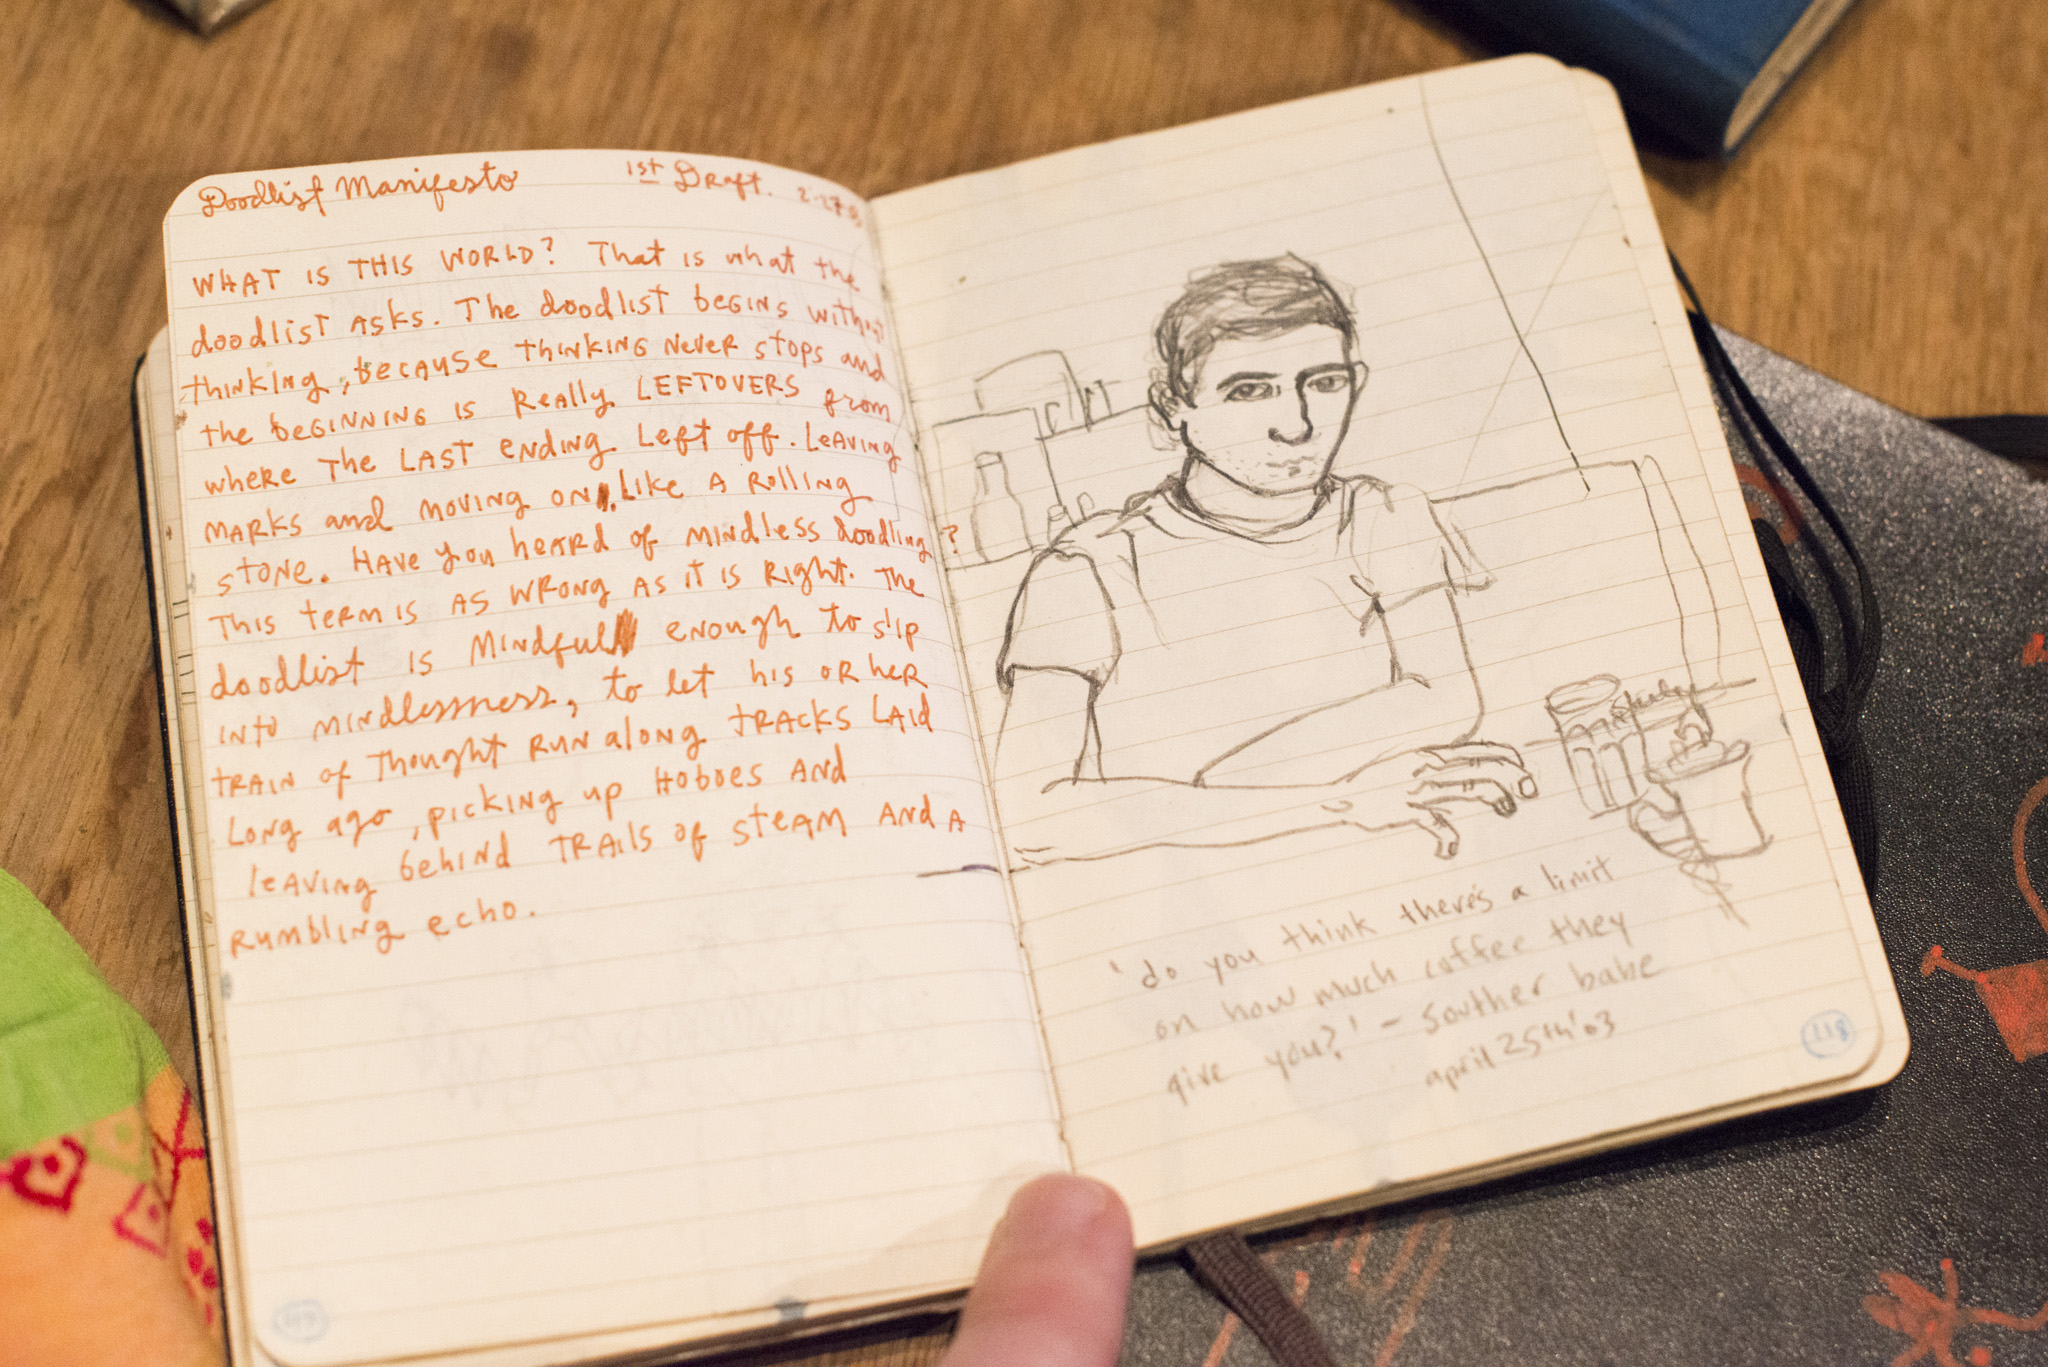 Doodlist Manifesto 1st Draft. 2.27.03
WHAT IS THIS WORLD? That is what the
doodlist asks. The doodlist begins without
thinking, because thinking never stops and
the beginning is really LEFTOVERS from
where the last ending left off. Leaving
marks and moving on. Like a rolling
stone. Have you heard of mindless doodling?
This term is as wrong as it is right. The
doodlist is mindful enough to slip
into mindlessness, to let his or her
train of thought run along tracks laid
long ago, picking up hoboes and
leaving behind trails of steam and a
rumbling echo.
117
'do you think there's a limit
on how much coffee they
give you?' - souther babe
april 25th '03
118